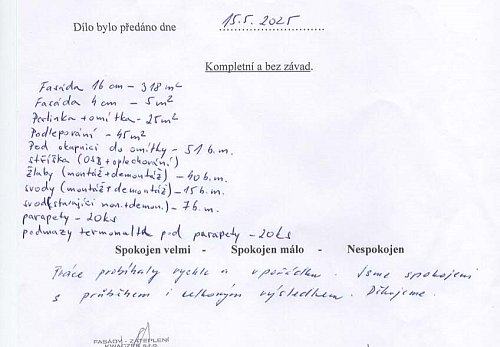 Dílo bylo předáno dne 15.5.2025
Kompletní a bez závad.
Fasáda 16 cm - 318 m²
Fasáda 4 cm - 5 m²
Perlinka + omítka - 25 m²
Podlepování - 45 m²
Pod okapnici do omítky - 51 b.m.
stříška (OSB + oplechování)
žlaby (montáž + demontáž) - 40 b.m.
svody (montáž + demontáž) - 15 b.m.
svod (stávající mon. + demon.) - 7 b.m.
parapety - 20 ks
podmazy termomalta pod parapety - 20 ks
Spokojen velmi - Spokojen málo - Nespokojen
Práce probíhaly rychle a v pořádku. Jsme spokojeni
s průběhem i celkovým výsledkem. Děkujeme.
FASÁDY - ZATEPLENÍ